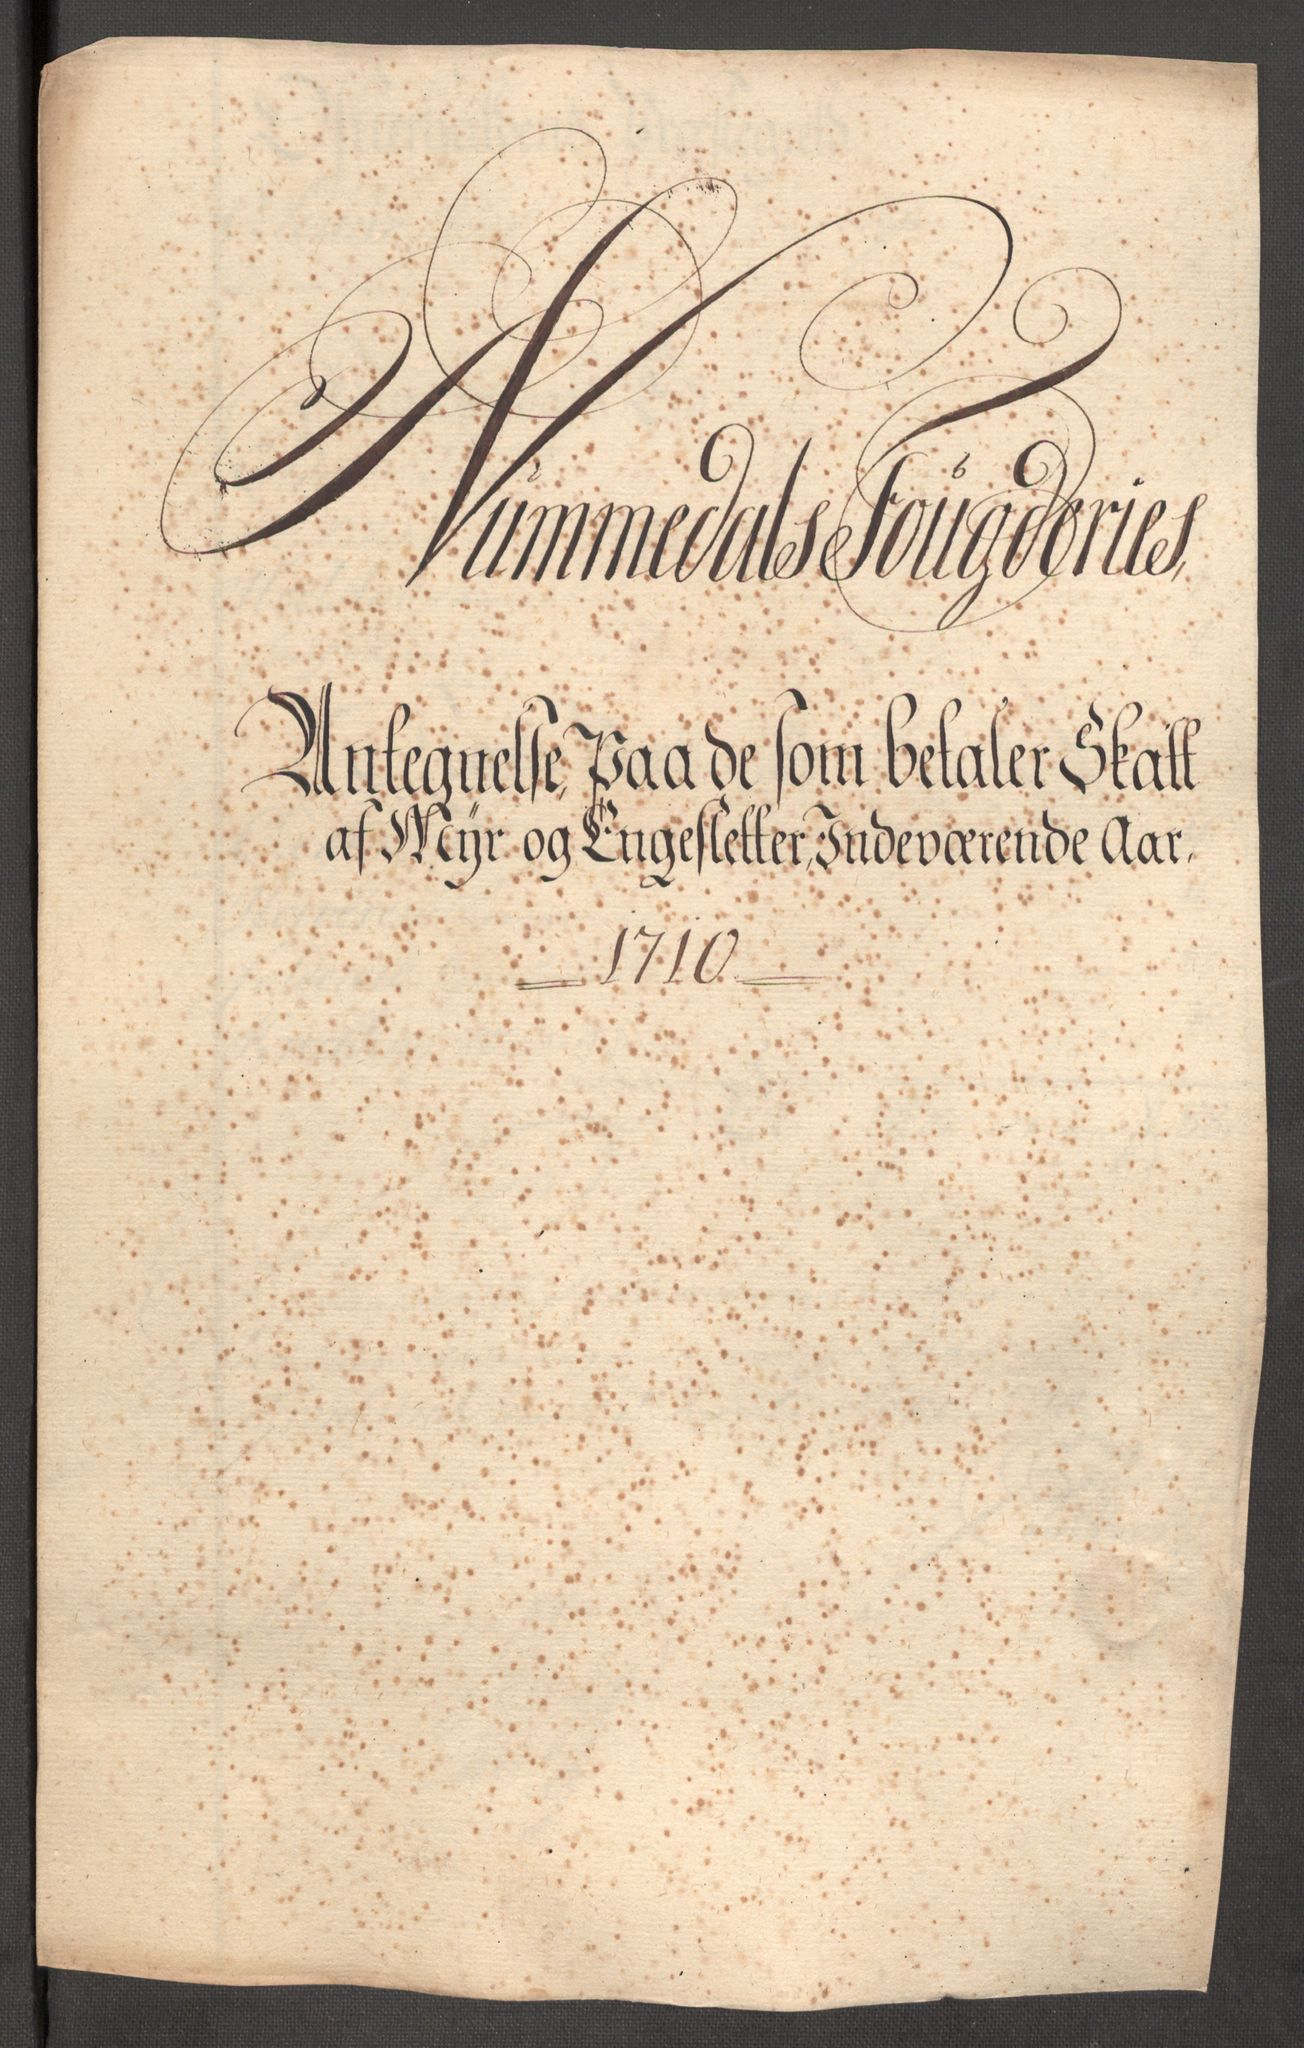 Nummedals Fougderies,
Antegnelse, Paa de som betaler Skatt
af Myr og Engesletter, Indeværende Aar.
1710